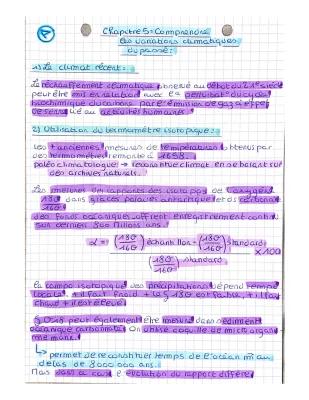 Chapitre 5: Comprendre
les variations climatiques
du passé:
1) Le climat récent:
Le réchauffement climatique observé au début du 21e siècle
peut être mis en relation avec la perturbat° du cycle
biochimique du carbone par l'émission de gaz à effet
de serre lié au activités humaines.
2) Utilisation du thermomètre isotopique:
Les + anciennes mesures de température obtenus par
des thermomètres remonte à 1658.
paléoclimatologue → reconstitue climat en se basant sur
des archives naturels.
Les mesures de rapports des isotopes de l'oxygène
18O/16O dans glaces polaires antarctique et ds carbonates
des fonds océaniques offrent enregistrement continu
sur dernier 800 Millions ans.
(18O/16O) échantillon - (18O/16O) Standards
(18O/16O) standard
x 100
La compo isotopique des précipitations dépend tempé
locale. + il fait froid + le δ 18O est faible, + il fait
chaud + il est élevé
δ O18 peut également être mesuré dans sédiment
océanique carbonaté. On utilise coquille de micro organis
me marin.
↳ permet de reconstituer temps de l'océan
delas de 8000 000 ans.
Mais dans ce cas l'évolution du rapport diffère